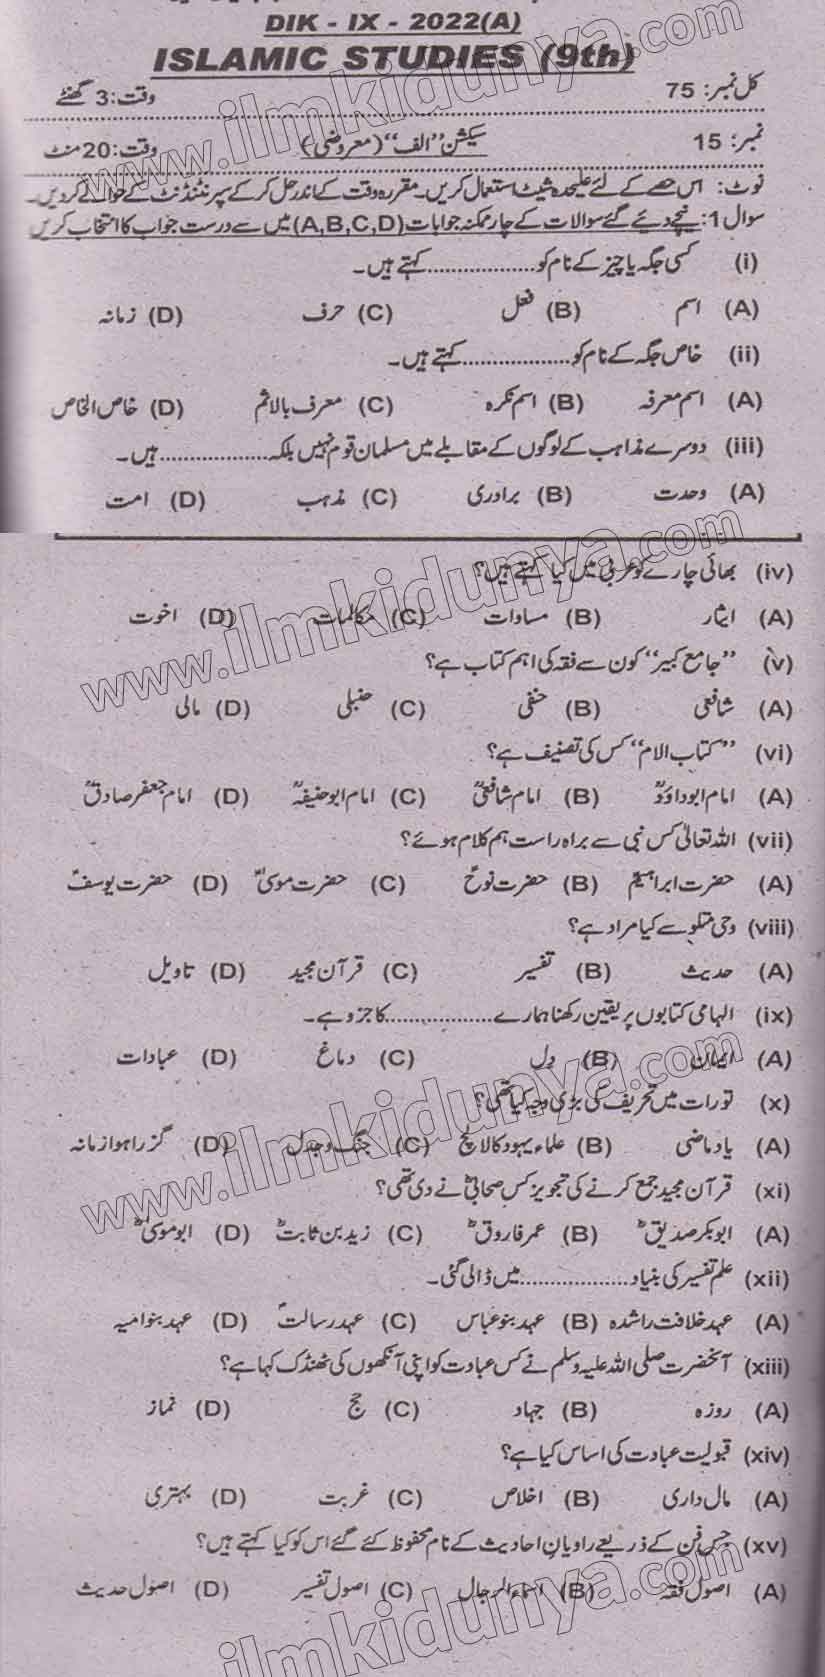 DIK - IX - 2022(A)
ISLAMIC STUDIES (9th)
کل نمبر: 75 وقت: 3 گھنٹے
نمبر: 15 سیکشن "الف" (معروضی) وقت: 20 منٹ
نوٹ: اس حصے کے لئے علیحدہ شیٹ استعمال کریں۔ مقررہ وقت کے اندر حل کر کے سپرنٹنڈنٹ کے حوالے کردیں۔
سوال 1: نیچے دیئے گئے سوالات کے چار ممکنہ جوابات (A,B,C,D) میں سے درست جواب کا انتخاب کریں
(i) کسی جگہ یا چیز کے نام کو.................. کہتے ہیں۔
(A) اسم (B) فعل (C) حرف (D) زمانہ
(ii) خاص جگہ کے نام کو.................. کہتے ہیں۔
(A) اسم معرفہ (B) اسم نکرہ (C) معرف بالاثم (D) خاص الخاص
(iii) دوسرے مذاہب کے لوگوں کے مقابلے میں مسلمان قوم نہیں بلکہ.................. ہیں۔
(A) وحدت (B) برادری (C) مذہب (D) امت
(iv) بھائی چارے کو عربی میں کیا کہتے ہیں؟
(A) ایثار (B) مساوات (C) مکالمات (D) اخوت
(v) "جامع کبیر" کون سے فقہ کی اہم کتاب ہے؟
(A) شافعی (B) حنفی (C) حنبلی (D) مالی
(vi) "کتاب الام" کس کی تصنیف ہے؟
(A) امام ابوداؤدؒ (B) امام شافعیؒ (C) امام ابوحنیفہؒ (D) امام جعفر صادقؒ
(vii) اللہ تعالیٰ کس نبی سے براہ راست ہم کلام ہوئے؟
(A) حضرت ابراہیمؑ (B) حضرت نوحؑ (C) حضرت موسیٰؑ (D) حضرت یوسفؑ
(viii) وحی متلو سے کیا مراد ہے؟
(A) حدیث (B) تفسیر (C) قرآن مجید (D) تاویل
(ix) الہامی کتابوں پر یقین رکھنا ہمارے.................. کا جزو ہے۔
(A) ایمان (B) دل (C) دماغ (D) عبادات
(x) تورات میں تحریف کی بڑی وجہ کیا تھی؟
(A) یاد ماضی (B) علماء یہود کا لالچ (C) جنگ و جدل (D) گزرا ہوا زمانہ
(xi) قرآن مجید جمع کرنے کی تجویز کس صحابیؓ نے دی تھی؟
(A) ابوبکر صدیقؓ (B) عمر فاروقؓ (C) زید بن ثابتؓ (D) ابو موسیٰؓ
(xii) علم تفسیر کی بنیاد.................. میں ڈالی گئی۔
(A) عہد خلافت راشدہ (B) عہد بنو عباس (C) عہد رسالتؐ (D) عہد بنو امیہ
(xiii) آنحضرت صلی اللہ علیہ وسلم نے کس عبادت کو اپنی آنکھوں کی ٹھنڈک کہا ہے؟
(A) روزہ (B) جہاد (C) حج (D) نماز
(xiv) قبولیت عبادت کی اساس کیا ہے؟
(A) مال داری (B) اخلاص (C) غربت (D) بہتری
(xv) جس فن کے ذریعے راویان احادیث کے نام محفوظ کئے گئے اس کو کیا کہتے ہیں؟
(A) اصول فقہ (B) اسماء الرجال (C) اصول تفسیر (D) اصول حدیث
www.ilmkidunya.com
www.ilmkidunya.com
www.ilmkidunya.com
ilmkidunya.com